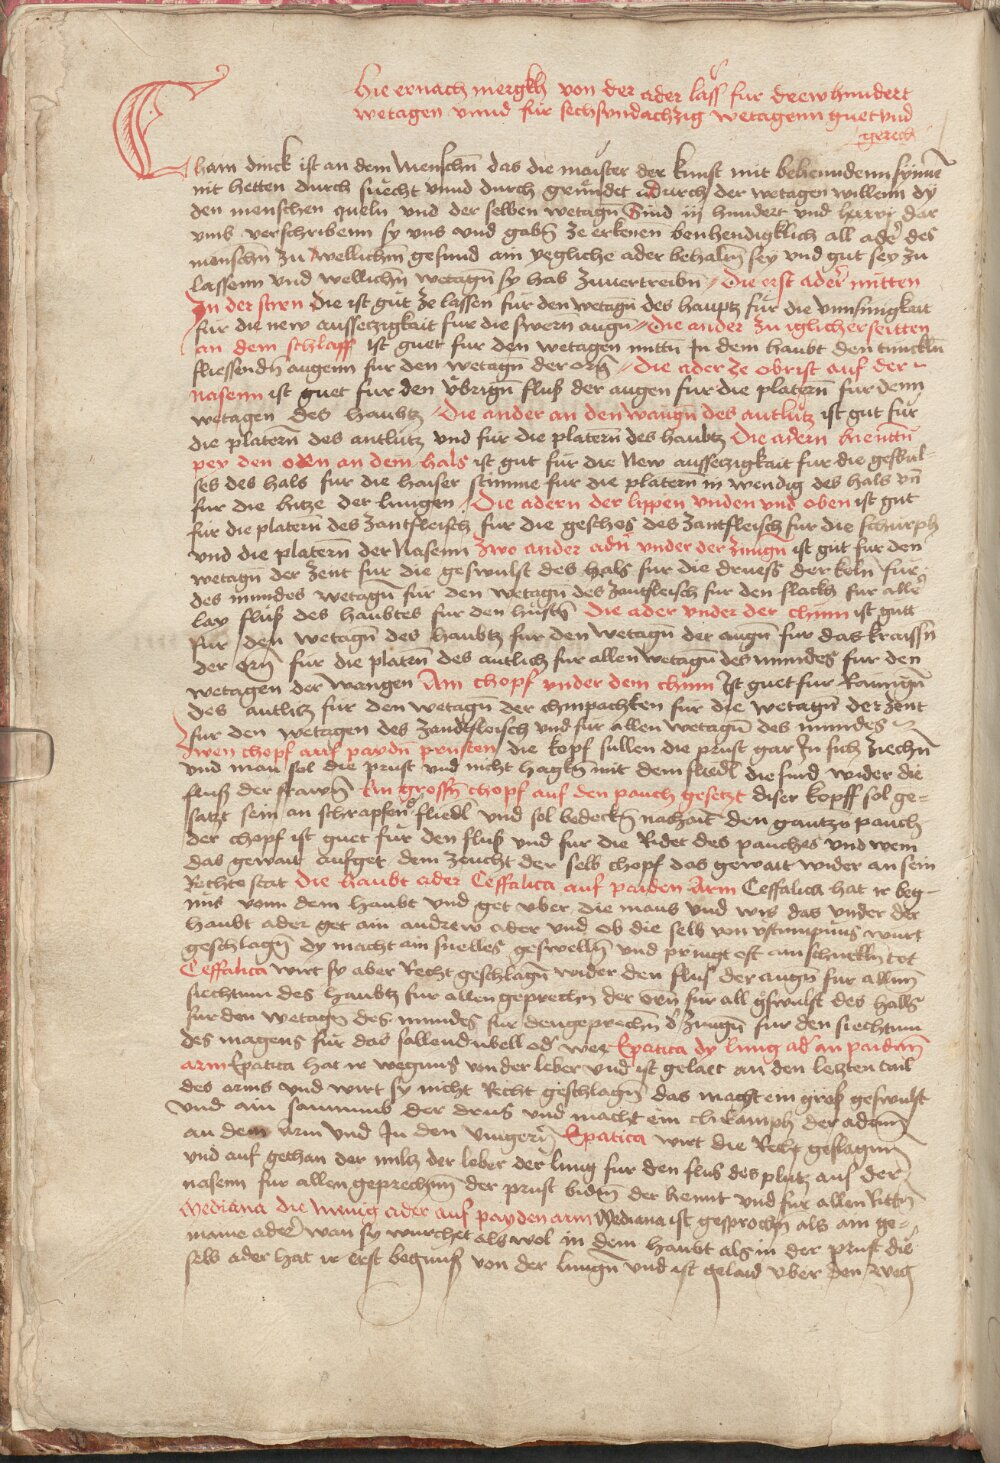 Hie ernach mergkh von der ader lass fur drew hundert
wetagen vnnd fur sechsvndachzig wetagenn guet vnd
gerech
Cham dinck ist an dem Menschn̄ das die maister der kunst mit behenndenn synne
nit hetten durch suecht vnnd durch grundet durch der wetagen willenn dy
den menschen queln vnd der selben wetagn̄ Sind iij hundert vnd lxxxvj dar
vmb verschribenn sy vns vnd gabn̄ ze erkenen behendigklich all ader des
menschn̄ zu wellichm̄ gesund ain yegliche ader behalm̄ sey vnd gut sey zu
lassenn vnd wellichn̄ wetagn̄ sy hab zuuertreibn̄ Die erst ader mitten
In der stren die ist gut ze lassen fur den wetagn̄ des hauptz fur die vnnsinigkait
fur die new aussetzigkait fur die swern augn̄ Die ander zu iglicher seitten
an dem schlaff ist guet fur den wetagen mittn̄ In dem haubt den tunckln̄
fliessendn̄ augenn fur den wetagn̄ der orn̄ Die ader ze obrist auf der
nasenn ist guet fur den vbrign̄ fluß der augen fur die platern̄ fur denn
wetagen des haubtz Die ander an den wangn̄ des antlutz ist gut fur
die platern̄ des antlutz vnd fur die platern̄ des haubtz Die adern hientn̄
pey den orn an dem hals ist gut fur die New aussetzigkait fur die geswul
ses des hals fur die haiser stimme fur die platern̄ in wendig des hals vn̄
fur die hitze der lungen Die adern der lippen vnden vnd oben ist gut
fur die platern̄ des zantfleisch fur die geschos des zantfleisch fur die schurph
vnd die platern̄ der Nasenn Zwo ander adn̄ vnder der zungn̄ ist gut fur den
wetagn̄ der zent fur die geswulst des hals fur die druess der keln fur
des mundes wetagn̄ fur den wetagn̄ des zantfleisch fur den flackh fur alle
lay fluß des haubtes fur den hustn̄ Die ader vnder der chinn ist gutt
fur den wetagn̄ des haubtz fur den wetagn̄ der augn̄ fur das kraissn̄
der orn̄ fur die platern̄ des antlich fur allen wetagn̄ des mundes fur den
wetagen der wangen Am chopf vnder dem chinn Ist guet fur Ramign̄
des antlitz fur den wetagn̄ der chinpachken fur die wetagn̄ der zent
fur den wetagen des zandtfleisch vnd fur allen wetagn̄ des mundes
Zwen chopf auf paydn̄ prusten die kopf sullen die prust gar In sich ziechn̄
vnd man sol die prust vnd nicht hagkn̄ mit dem fliedl die sind wider die
fluß der frawn̄ Ein grossn̄ chopf auf den pauch gesetzt diser kopff sol ge=
satzt sein an schrapfen fliedl vnd sol bedeckn̄ nachait den gantzn̄ pauch
der chopf ist guet fur den fluß vnd fur die Ridet des pauches vnd wem
das gewait aufget dem zeucht der selb chopf das gewait wider an sein
Rechte stat Die haubt ader Ceffalica auf paiden Arm Ceffalica hat ir beg=
nus vonn dem haubt vnd get vber die maus vnd wis das vnder der
haubt ader get ain andrew ader vnd ob die selb von vstumpnus wurt
geschlagn̄ dy macht ain snelles geswelln̄ vnd pringt oft ain schnelln̄ tot
Ceffalica wirt sy aber Recht geschlagn̄ wider den fluß der augn̄ fur allnn̄
siechtum des haubtz fur allen geprechn̄ der orn̄ fur all gswulst des halls
fur den wetagn̄ des mundes fur den geprechn̄ d zungn̄ fur den siechtum
des magens fur das fallend ubell od wee Epatica dy lung ad an paidnn̄
arm Epatica hat ir wegnus von der leber vnd ist gelait an den letzten tail
des arms vnd wirt sy nicht Recht geschlagn̄ das macht ein groß geswulst
vnd ain sammnnb der drus vnd macht ein chramph der adern̄
an dem Arm vnd In den vingern̄ Epatica wirt die Recht geslagnn̄
vnd auf gethan der milz der leber der lung fur den flus des plutz auß der
nasenn fur allen geprechnn̄ der prust vnd fur allen Rittn̄
Mediana die mitig ader auf payden arm Mediana ist gesprochn̄ als ain ge=
maine ader wan sy wurchet als wol in dem haubt als in der prust die
selb ader hat ir erst begnuß von der lungn̄ vnd ist gelaid vber den weg